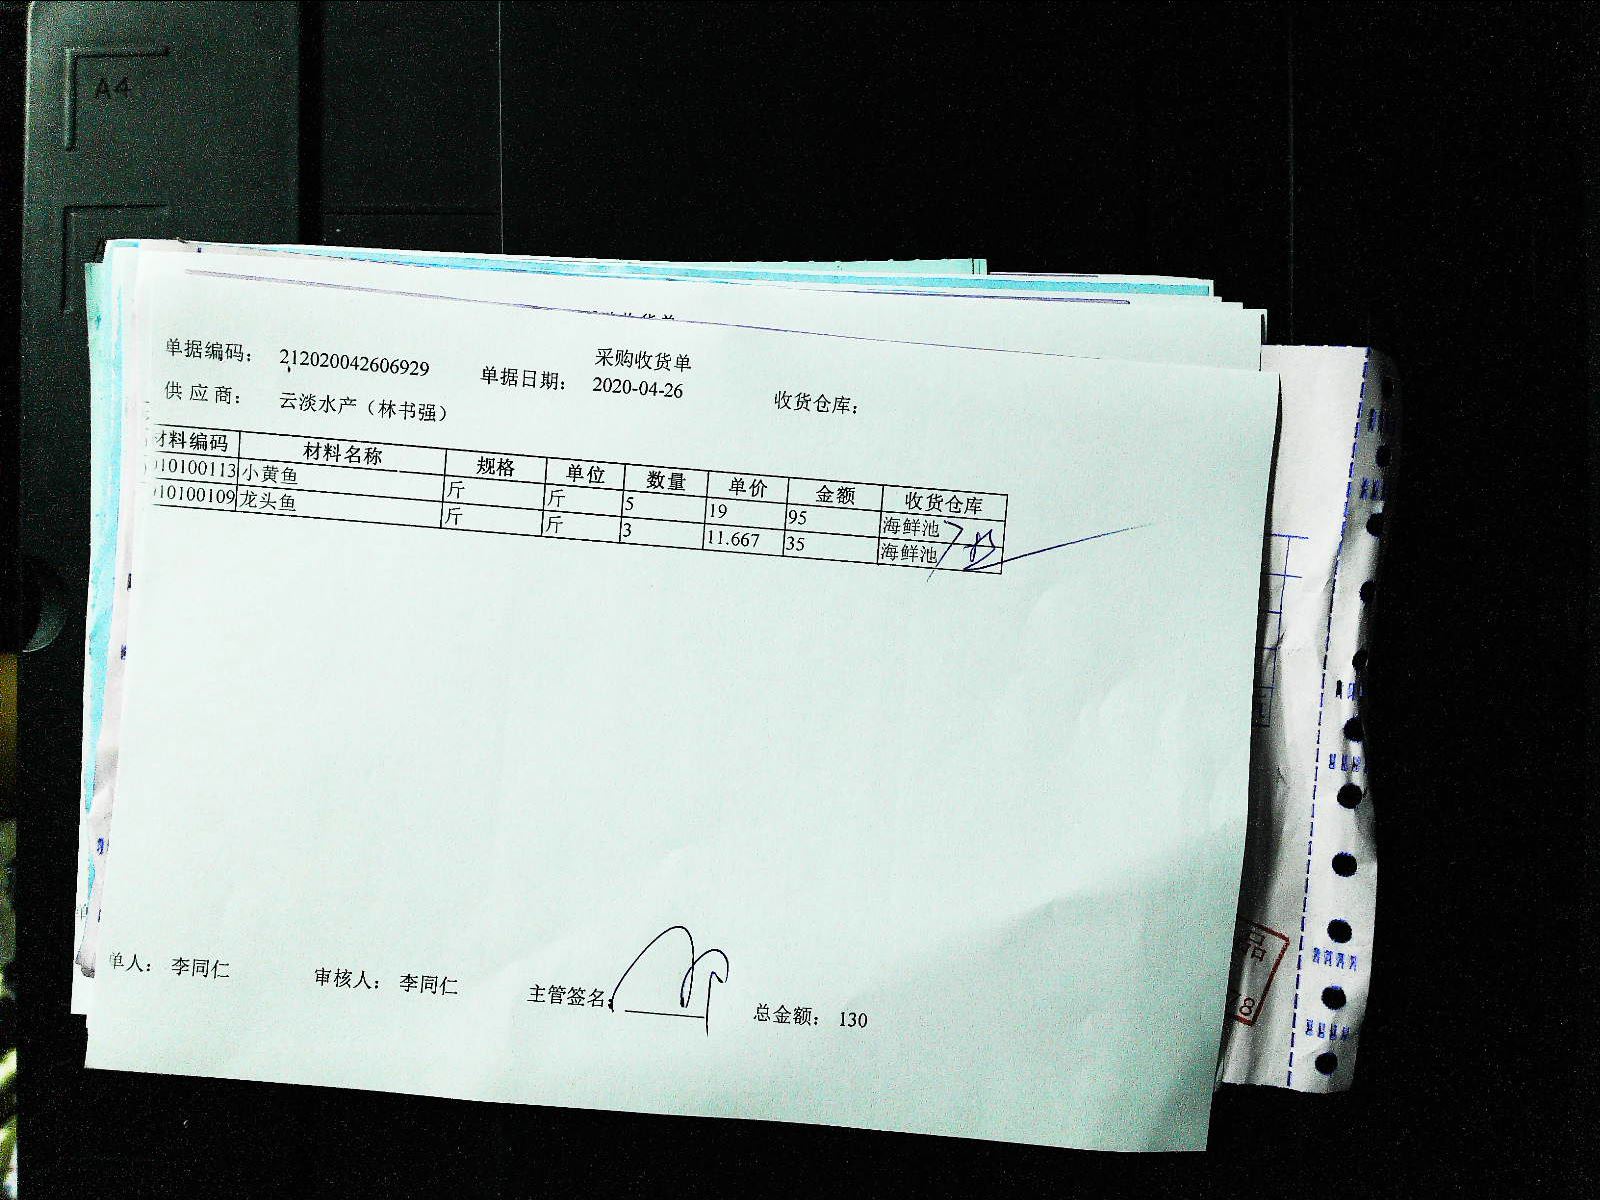 A4
采购收货单
单据编码： 212020042606929 单据日期： 2020-04-26 收货仓库：
供 应 商： 云淡水产（林书强）
材料编码 材料名称 规格 单位 数量 单价 金额 收货仓库
010100113 小黄鱼 斤 斤 5 19 95 海鲜池
010100109 龙头鱼 斤 斤 3 11.667 35 海鲜池
单人： 李同仁 审核人： 李同仁 主管签名： 总金额： 130